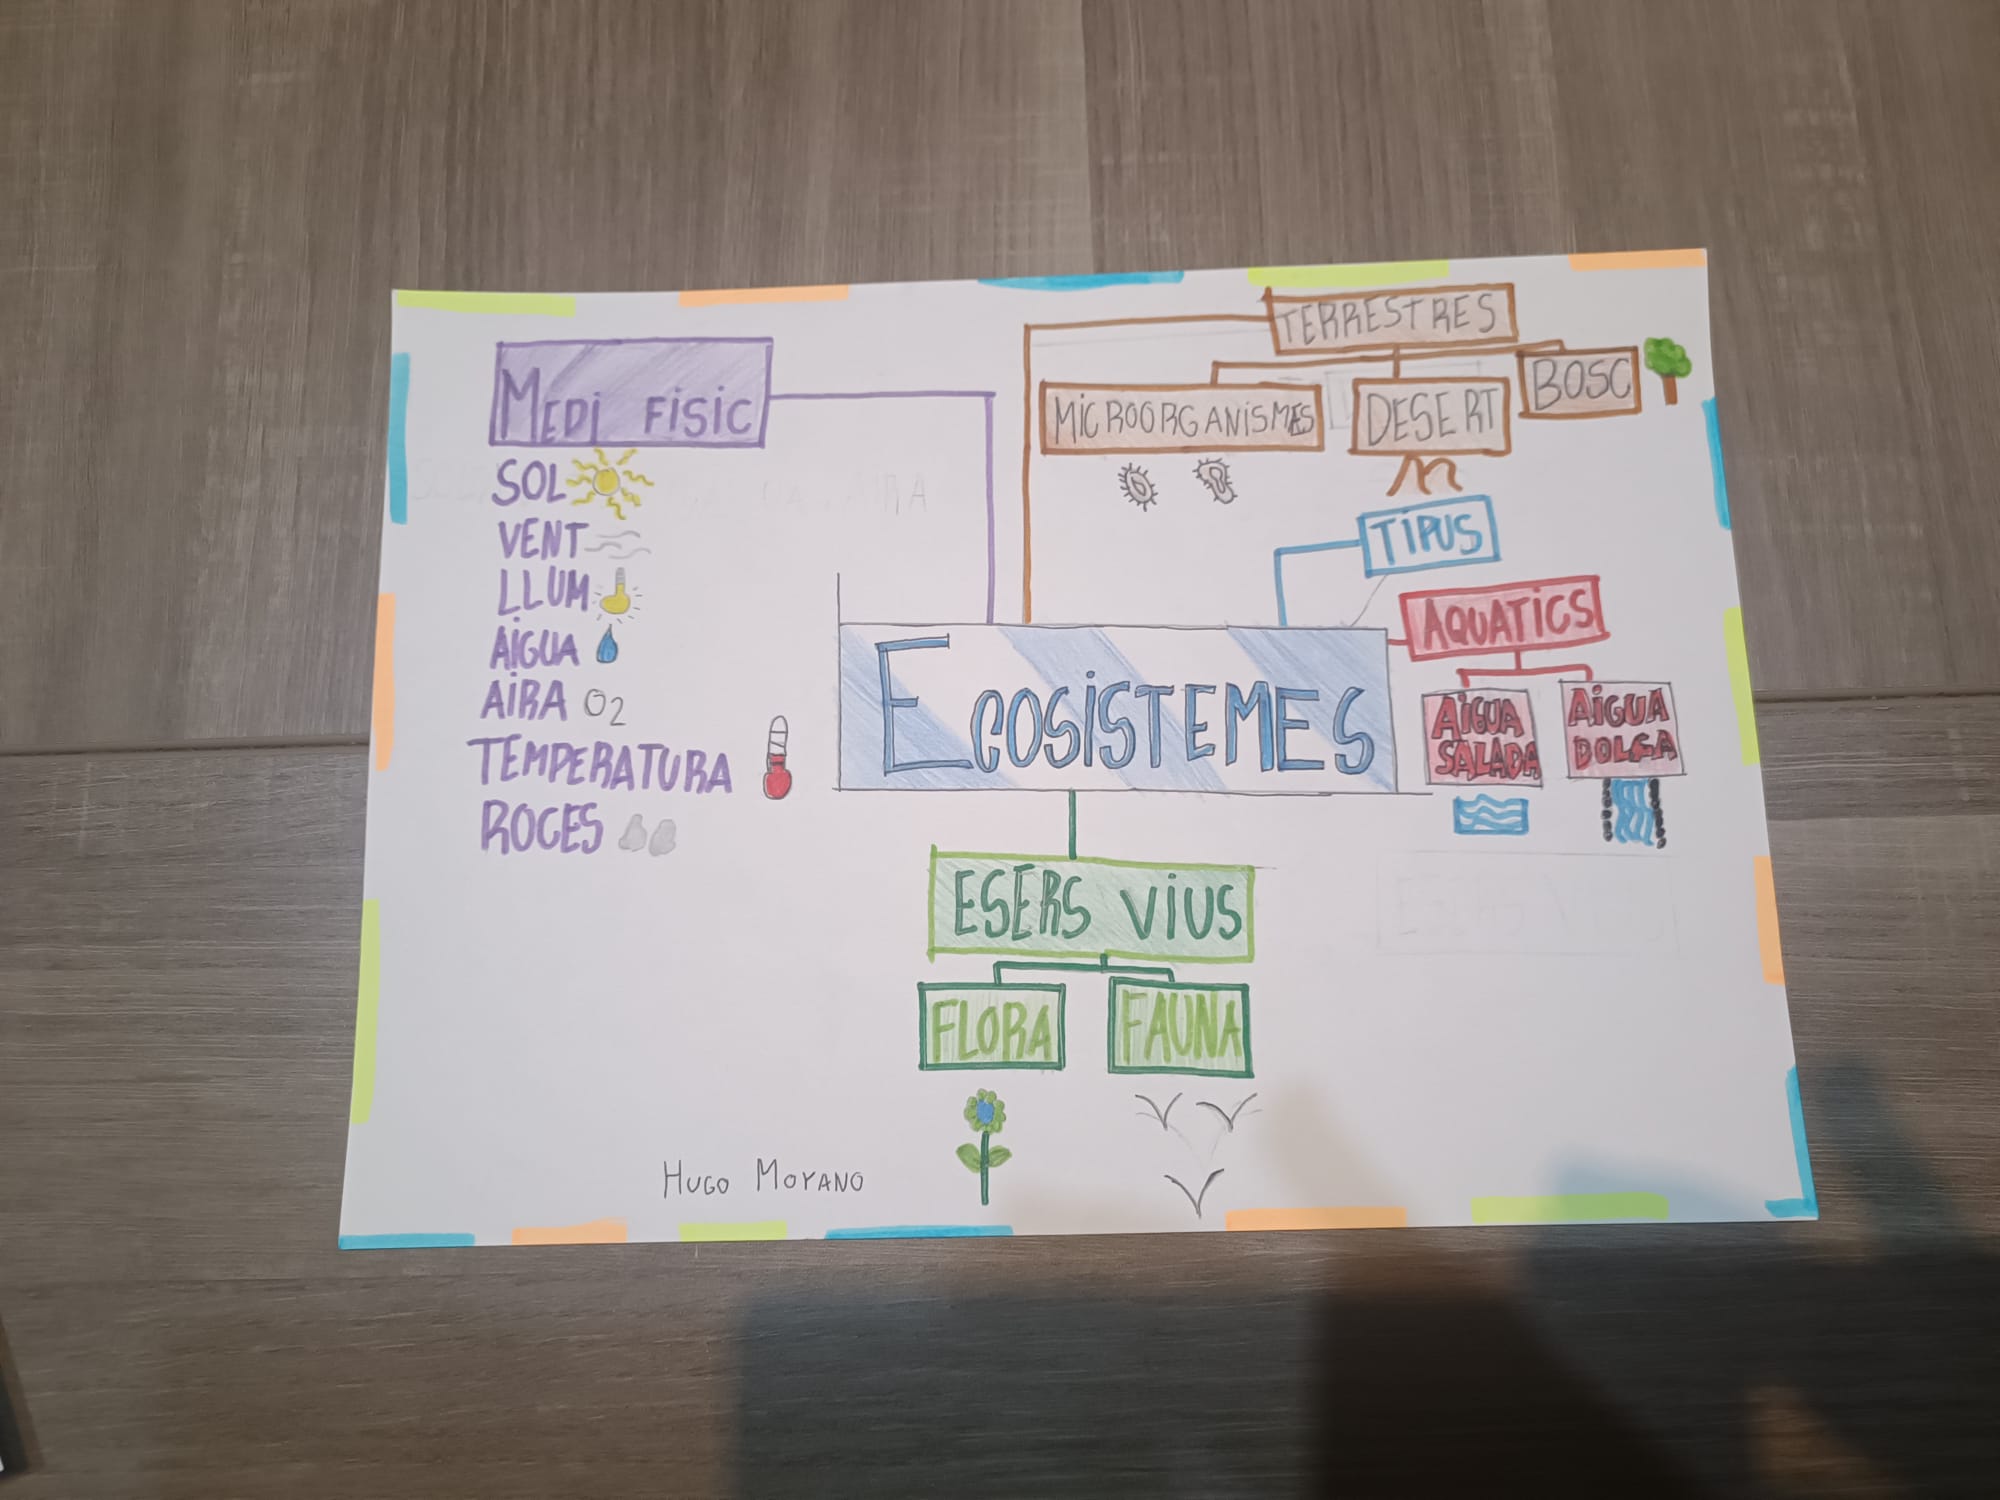 TERRESTRES
MEDI FISIC
MICROORGANISMES
DESERT
BOSC
SOL
VENT
LLUM
AIGUA
AIRA O2
TEMPERATURA
ROCES
TIPUS
AQUATICS
ECOSISTEMES
AIGUA
SALADA
AIGUA
DOLÇA
ESERS VIUS
FLORA
FAUNA
HUGO MOYANO
ESERS VIUS